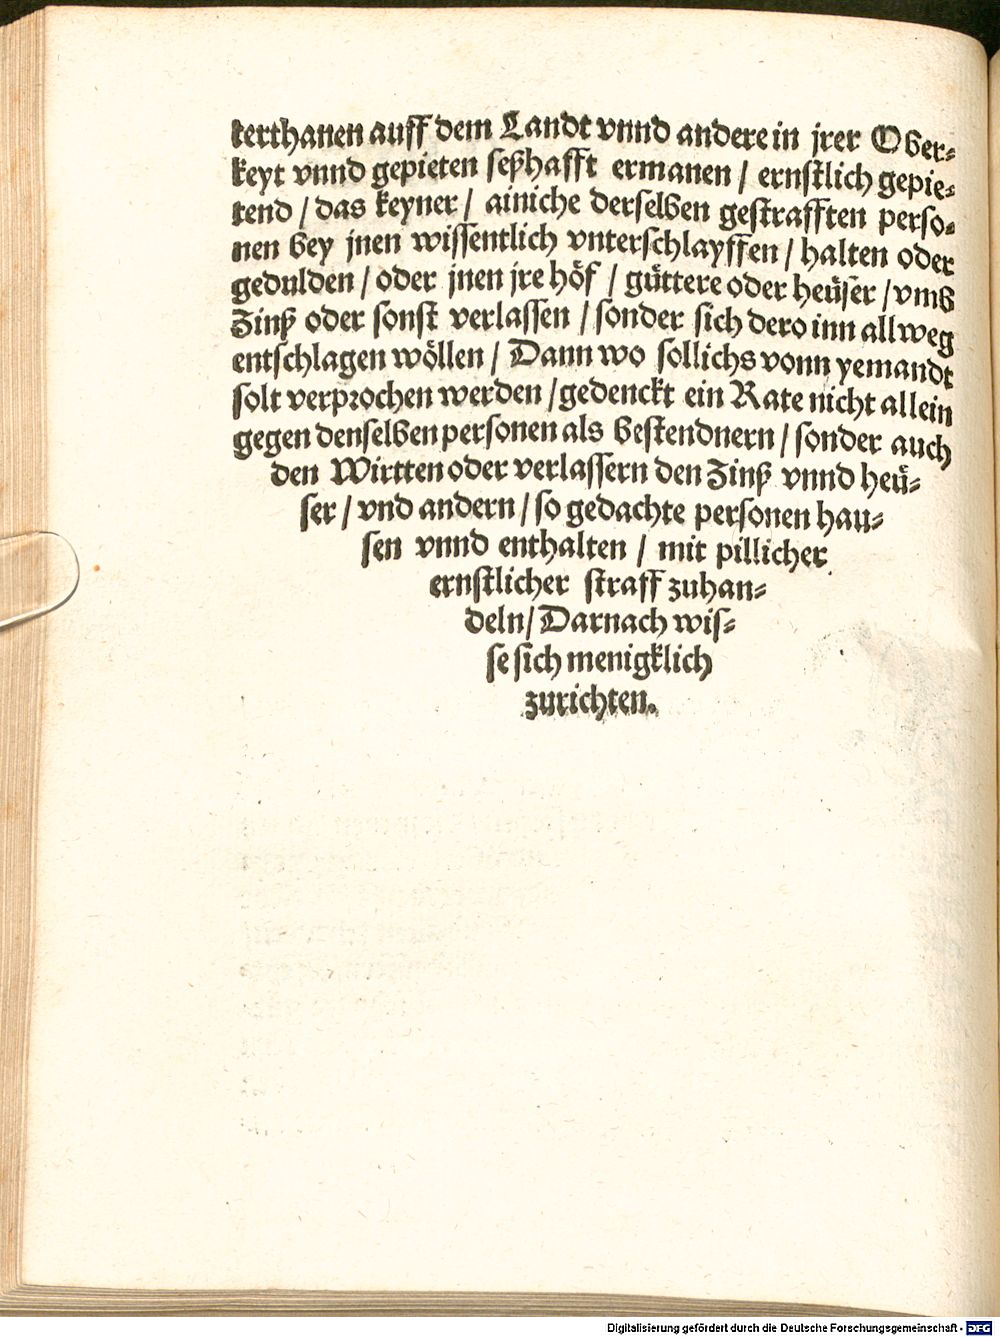 terthanen auff dem Landt vnnd andere in jrer Ober⸗
keyt vnnd gepieten seßhafft ermanen / ernstlich gepie⸗
tend / das keyner / ainiche derselben gestrafften perso⸗
nen bey jnen wissentlich vnterschlayffen / halten oder
gedulden / oder jnen jre höf / güttere oder heüser / vmb
Zinß oder sonst verlassen / sonder sich dero inn allweg
entschlagen wöllen / Dann wo sollichs vonn yemandt
solt verprochen werden / gedenckt ein Rate nicht allein
gegen denselben personen als bestendnern / sonder auch
den Wirtten oder verlassern den Zinß vnnd heü⸗
ser / vnd andern / so gedachte personen hau⸗
sen vnnd enthalten / mit pillicher
ernstlicher straff zuhan⸗
deln / Darnach wis⸗
se sich menigklich
zurichten.
Digitalisierung gefördert durch die Deutsche Forschungsgemeinschaft - DFG